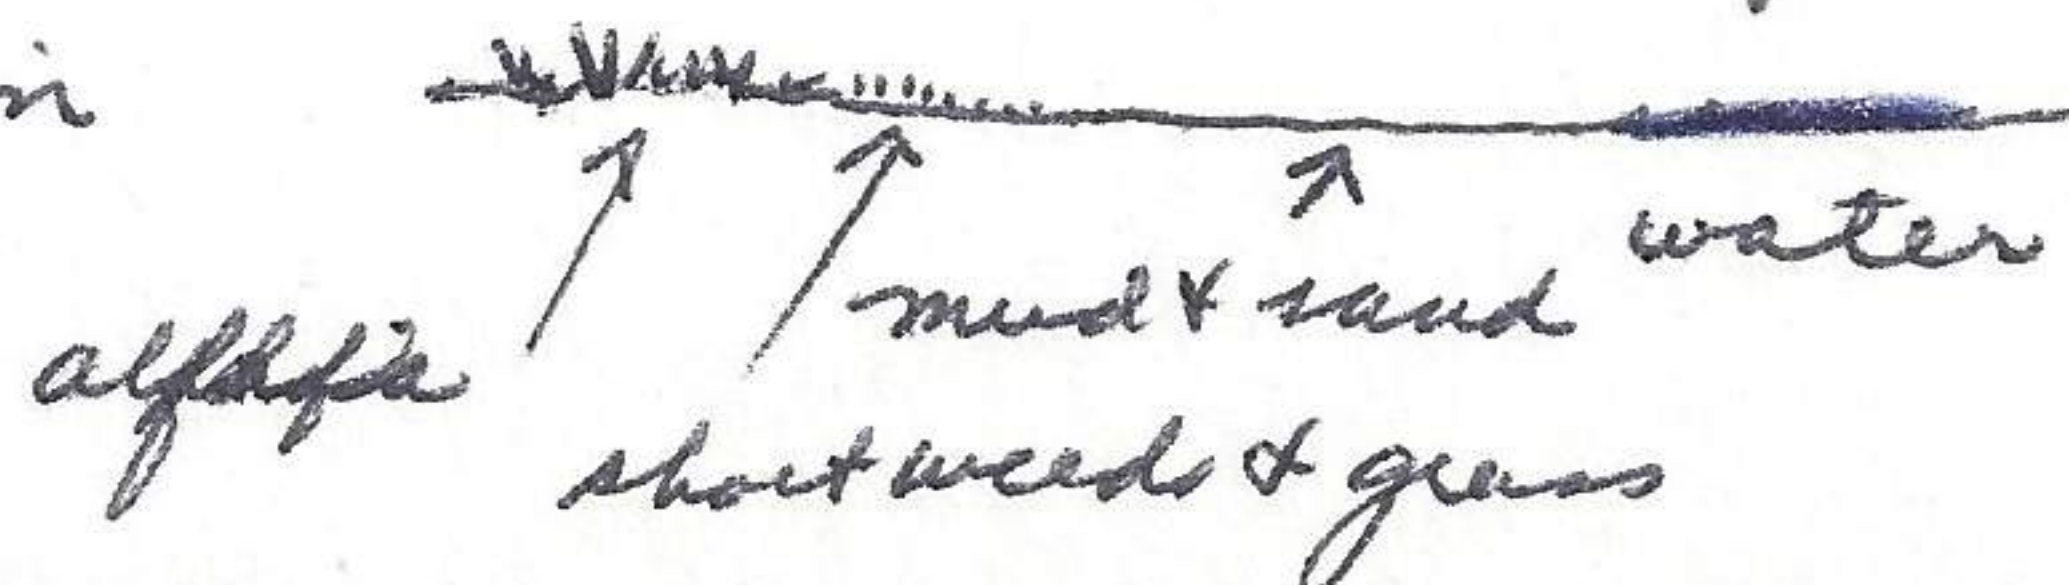 water
mud & sand
alfalfa
short weeds & grass